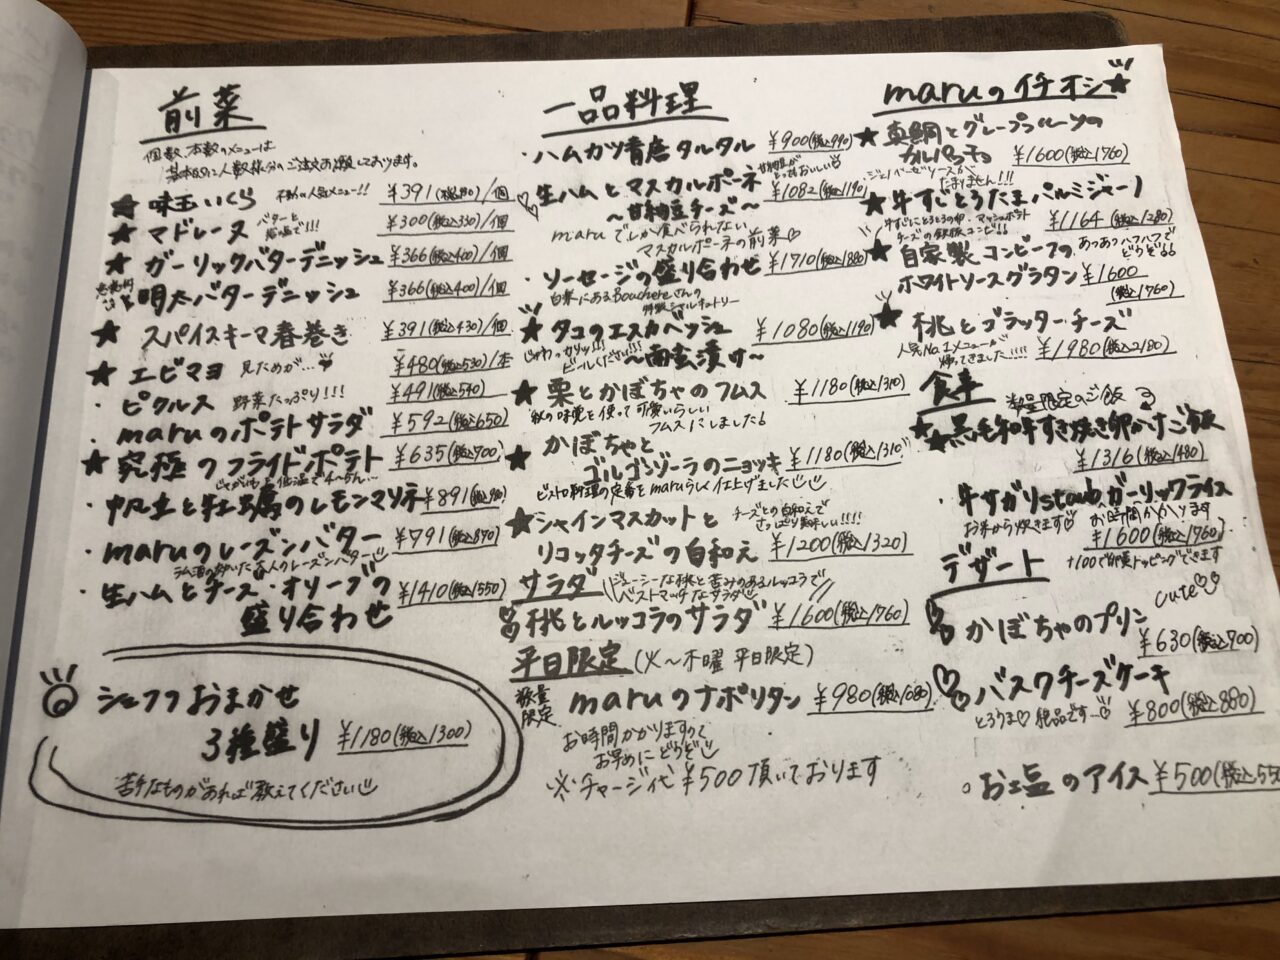 前菜
個数、本数のメニューは
基本的に人数様分のご注文お願いしております。
★ 味玉いくら 不動の人気メニュー!! ¥391(税込430)/個
★ マドレーヌ バターと ¥300(税込330)/個
★ ガーリックバターデニッシュ ¥366(税込400)/個
明太バターデニッシュ ¥366(税込400)/個
★ スパイスキーマ春巻き ¥391(税込430)/個
★ エビマヨ 見ためが… ¥480(税込530)/本
・ピクルス 野菜たっぷり!!! ¥491(税込540)
・maruのポテトサラダ ¥592(税込650)
★ 究極のフライドポテト ¥635(税込700)
じゃがいも 低温で4〜5h…
・帆立と牡蠣のレモンマリネ ¥891(税込980)
・maruのレーズンバター ¥791(税込870)
ラム酒の効いた大人のレーズンバター
・生ハムとチーズ・オリーブの
盛り合わせ ¥1410(税込1550)
シェフおまかせ
3種盛り ¥1180(税込1300)
苦手なものがあれば教えてください
一品料理
・ハムカツ背徳タルタル ¥900(税込990)
生ハムとマスカルポーネ 甘納豆が とってもおいしい
〜甘納豆チーズ〜 ¥1082(税込1190)
maruでしか食べられない
マスカルポーネの前菜♡
・ソーセージの盛り合わせ ¥1710(税込1880)
白楽にあるBoucherieさんの
特製シャルキュトリー
★ タコのエスカベッシュ ¥1080(税込1190)
じゅわっカリッ!!! 〜南蛮漬け〜
ビールください!!!
★ 栗とかぼちゃのフムス ¥1180(税込1310)
秋の味覚を使って可愛いらしい
フムスにしました
★ かぼちゃと
ゴルゴンゾーラのニョッキ ¥1180(税込1310)
ビストロ料理の定番をmaruらしく仕上げました
★ シャインマスカットと チーズとの白和えで
さっぱり美味しい!!!!
リコッタチーズの白和え ¥1200(税込1320)
サラダ
ジューシーな桃と苦みのあるルッコラで
ベストマッチなサラダ
桃とルッコラのサラダ ¥1600(税込1760)
平日限定(火〜木曜 平日限定)
数量
限定 maruのナポリタン ¥980(税込1080)
お時間かかりますので
お早めにどうぞ
※チャージ代¥500頂いております
maruのイチオシ★
★ 真鯛とグレープフルーツの
カルパッチョ ¥1600(税込1760)
ジェノベーゼソースが
たまりません!!!
★ 牛すじとうたまパルミジャーノ
牛すじにとろとろの卵・マッシュポテト
チーズの鉄板コンビ!! ¥1164(税込1280)
★ 自家製コンビーフの あつあつハフハフで どうぞ
ホワイトソースグラタン ¥1600
(税込1760)
★ 桃とブラッターチーズ
人気No.1メニューが
帰ってきました!!!! ¥1980(税込2180)
食事 数量限定のご飯
★★黒毛和牛すき焼き卵かけご飯
¥1316(税込1480)
・牛サガリstaubガーリックライス
お米から炊きます♡ お時間かかります
¥1600(税込1760)
+100で卵黄トッピングできます
デザート
cute♡♡
かぼちゃのプリン
¥630(税込700)
バスクチーズケーキ
とろうま♡絶品です… ¥800(税込880)
・お塩のアイス ¥500(税込550